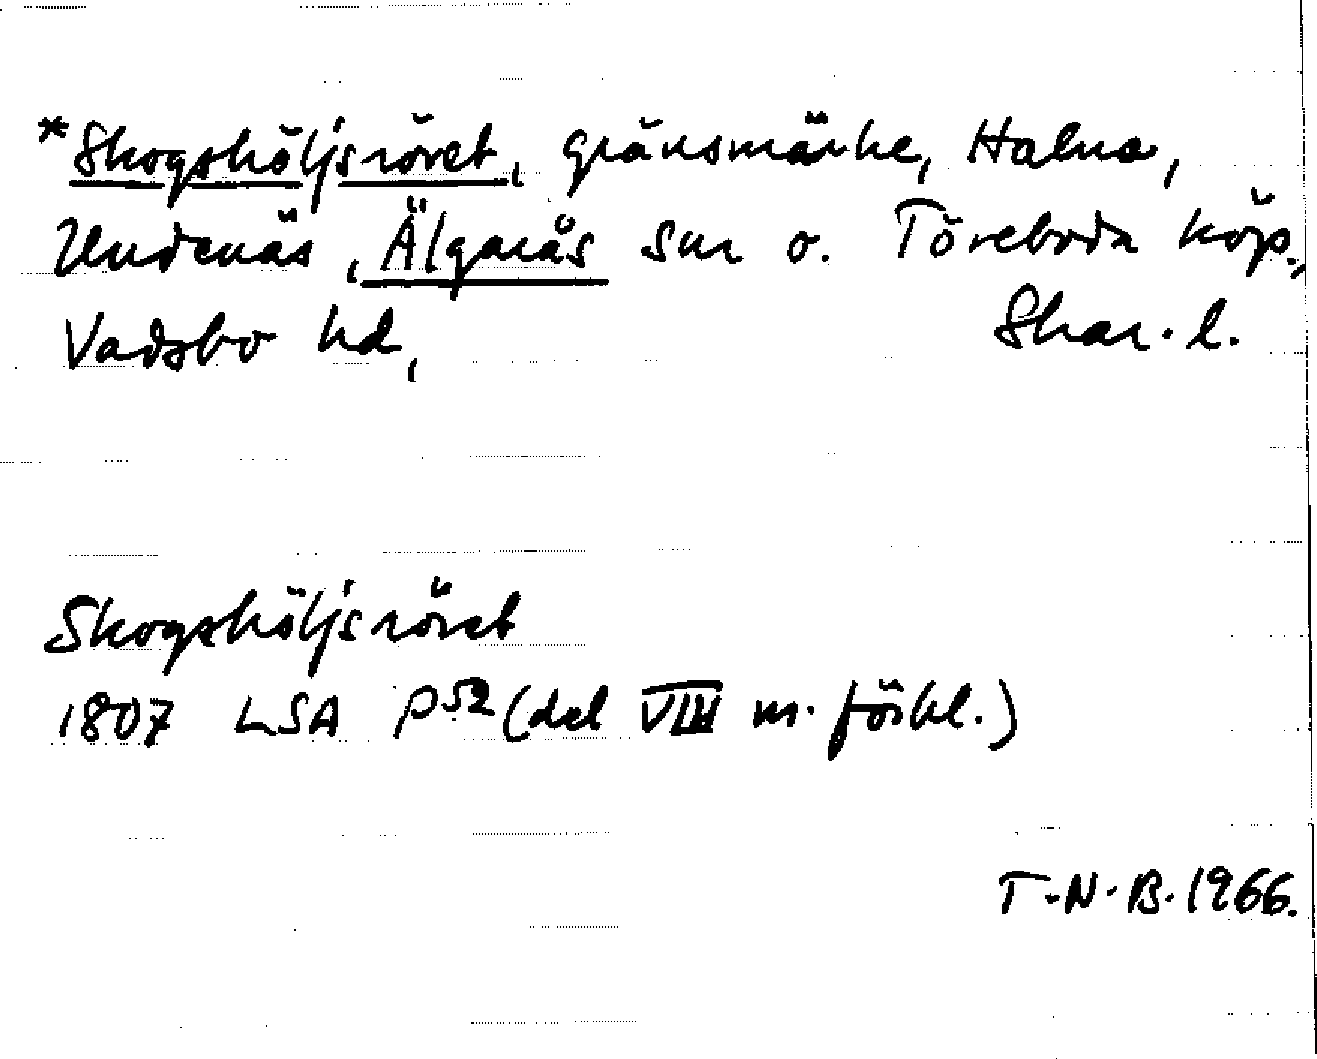 *Skogshöljsröret, gränsmärke, Halna,
Undenäs, Älgarås snr o. Töreboda köp.,
Vadsbo hd, Skar. l.
Skogshöljsröret
1807 LSA P52 (del VIII m. förkl.)
T.N.B. 1966.